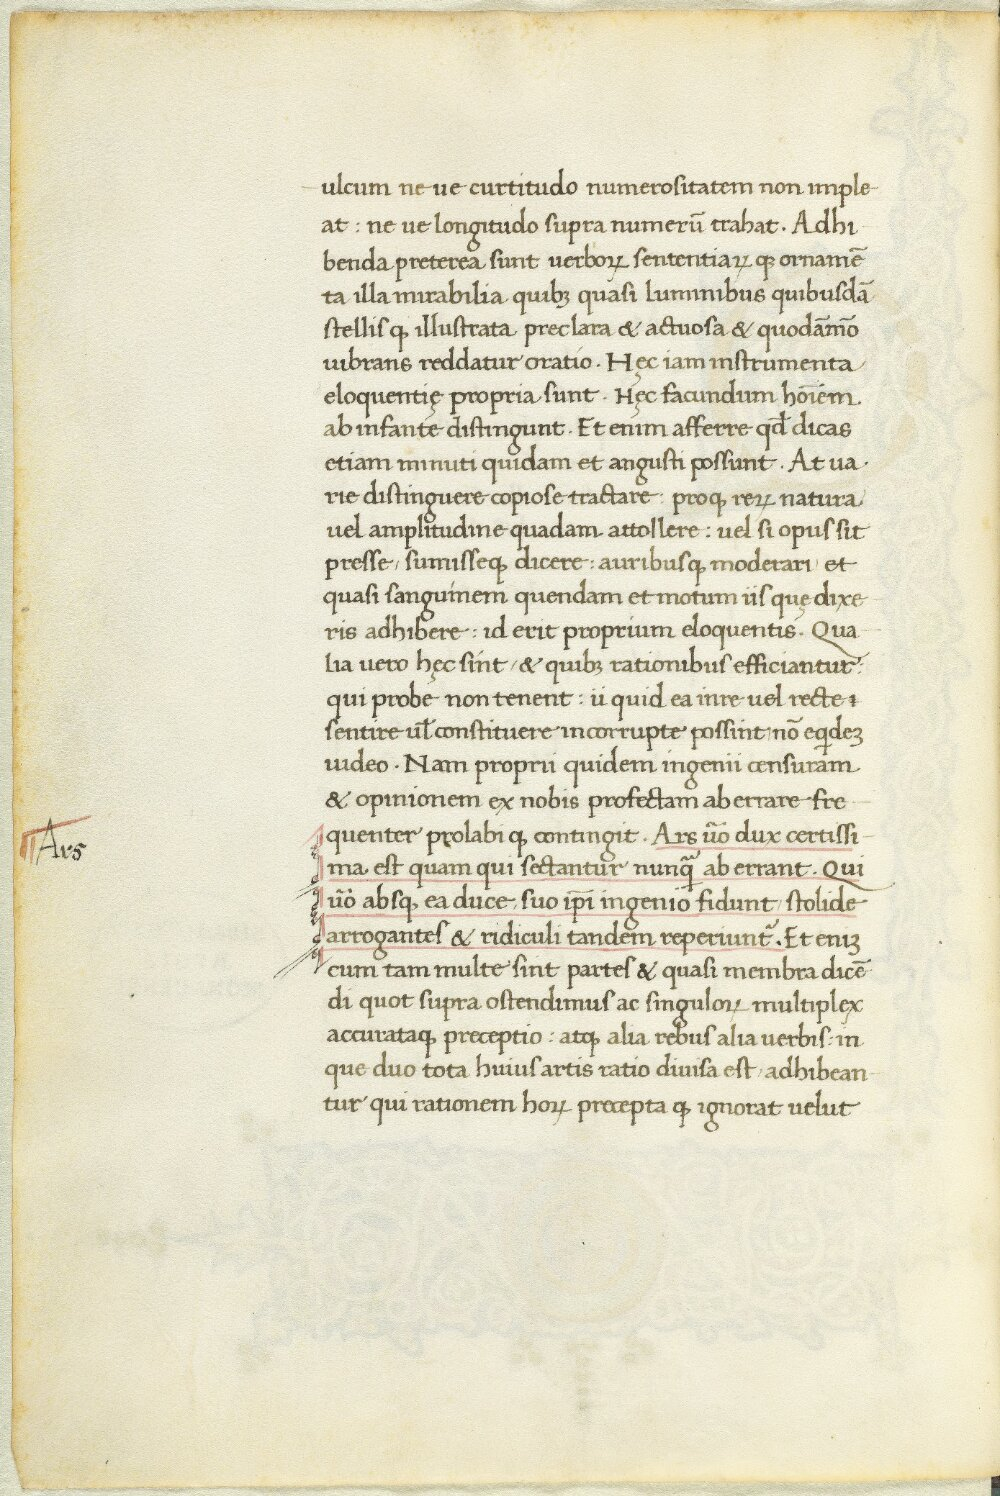 ulcum ne ue curtitudo numerositatem non imple
at : ne ue longitudo supra numerū trahat . Adhi
benda preterea sunt uerboꝝ sententiaꝝ qꝫ ornamē
ta illa mirabilia quibꝫ quasi luminibus quibusdā
stellis qꝫ illustrata preclara & actuosa & quodāmō
uibrans reddatur oratio . Hęc iam instrumenta
eloquentię propria sunt . Hęc facundum hoīem
ab infante distingunt . Et enim afferre qđ dicas
etiam minuti quidam et angusti possunt . At ua
rie distinguere copiose tractare : proqꝫ reꝝ natura
uel amplitudine quadam attollere : uel si opus sit
presse / sumisseqꝫ dicere : auribusqꝫ moderari et
quasi sanguinem quendam et motum iis quę dixe
ris adhibere : id erit proprium eloquentis . Qua
lia uero hęc sint / & quibꝫ rationibus efficiantur :
qui probe non tenent : ii quid ea in re uel recte
sentire uł constituere incorrupte possint nō eqideꝫ
uideo . Nam proprii quidem ingenii censuram
& opinionem ex nobis profectam aberrare fre
quenter prolabi qꝫ contingit . Ars ūo dux certissi
Ars
ma est quam qui sectantur nunq̄ aberrant . Qui
ūo absqꝫ ea duce suo ip̄i ingenio fidunt / stolide
arrogantes & ridiculi tandem reperiunt᷑ . Et eniꝫ
cum tam multe sint partes & quasi membra dicē
di quot supra ostendimus ac singuloꝝ multiplex
accurataqꝫ preceptio : atqꝫ alia rebus alia uerbis : in
que duo tota huius artis ratio diuisa est / adhibean
tur qui rationem hoꝝ precepta qꝫ ignorat uelut